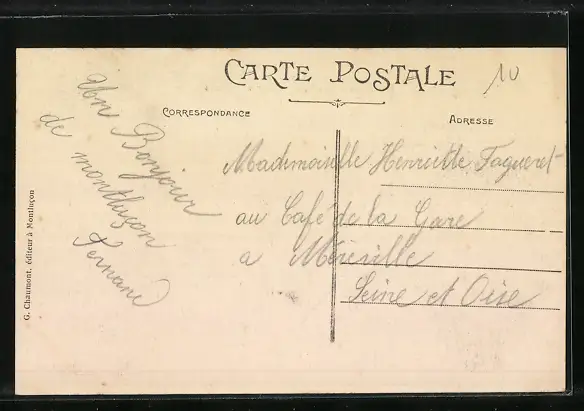 CARTE POSTALE
10
CORRESPONDANCE
ADRESSE
Un Bonjour
de montluçon
Fernand
Mademoiselle Henriette Fagueret
au Café de la Gare
a Méréville
Seine et Oise
G. Chaumont, éditeur à Montluçon